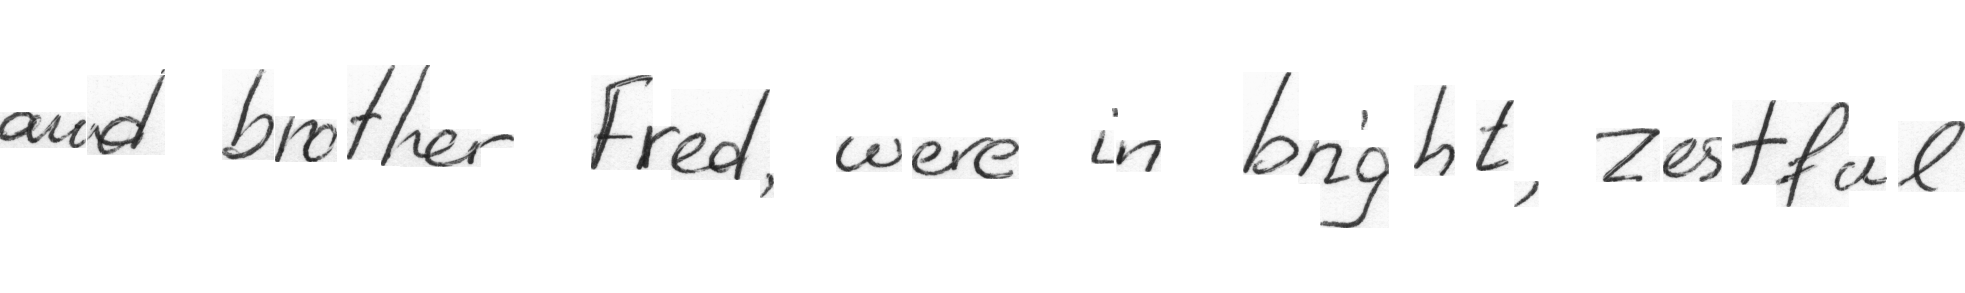 and brother Fred, were in bright, zestful